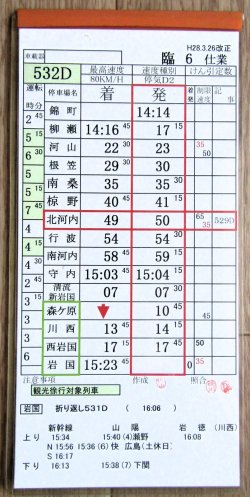 H28.3.26改正
車載器
臨 6 仕業
532D 最高速度 80KM/H 速度種別 停気D2 けん引定数
運転時分 停車場名 着 発 着発 制限速度 記事
錦町 14:14
2 45 柳瀬 14:16 45 17 30
5 15 河山 22 30 23 35 50
6 根笠 29 30 30
5 南桑 35 30 35 30
4 45 椋野 40 15 41 15
7 45 北河内 49 50 65 35 529D
4 行波 54 54 30
4 30 南河内 58 30 59 15
4 守内 15:03 15:04 15
清流新岩国 07 07 30
森ケ原 10 45
川西 13 45 14 15
西岩国 17 15 17 45
岩国 15:23 45 0 35
注意事項 作成 照合
観光徐行対象列車
岩国 折り返し531D ( 16:06)
新幹線 山陽 岩徳 (川西)
上り 15:34 15:40 (4)瀬野 16:08
N 15:56 15:36 (6) 快 広島(土休日)
S 16:17
下り 16:13 15:38 (7) 下関